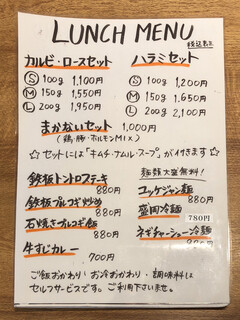 LUNCH MENU
税込表示
カルビ・ロースセット ハラミセット
Ⓢ 100g 1,100円 Ⓢ 100g 1,200円
Ⓜ 150g 1,550円 Ⓜ 150g 1,650円
Ⓛ 200g 1,950円 Ⓛ 200g 2,100円
まかないセット 1,000円
(鶏・豚・ホルモンMIX)
☆セットには「キムチ・ナムル・スープ」が付きます☆
鉄板トントロステーキ
880円
鉄板プルコギ炒め
880円
石焼きプルコギ飯
880円
牛すじカレー
700円
麺類大盛無料!
ユッケジャン麺
880円
盛岡冷麺
780円
ネギチャーシュー冷麺
ご飯おかわり・お冷おかわり・調味料は
セルフサービスです。ご利用下さいませ。